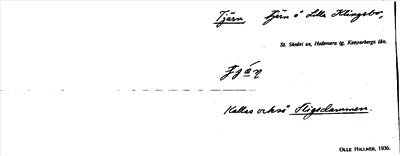 Tjärn, Tjärn å Lilla Klingsbo,
St. Skedvi sn, Hedemora tg, Kopparbergs län.
Kallas också Stigsdammen.
OLLE HILLNER, 1936.